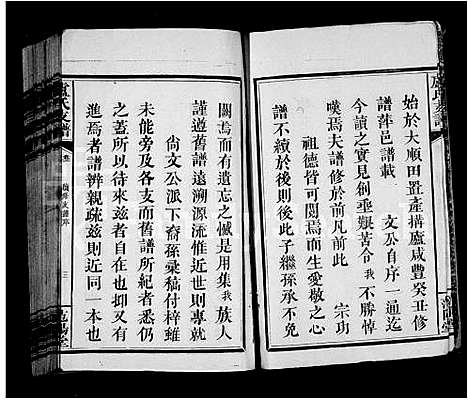 盧氏支譜
始於大順田置產搆廬咸豐癸丑修
譜萍邑譜載 文公自序一通迄
今讀之實見創垂艱苦令我不勝悼
嘆焉夫譜修於前凡前此 宗功
祖德皆可閱焉而生愛敬之心
譜不續於後則後此子繼孫承不免
闕焉而有遺忘之憾是用集我族人
謹遵舊譜遠溯源流惟近世則專
尚文公派下裔孫彙稿付梓雖
未能旁及各支而舊譜所紀者悉仍
之蓋所以後來茲者自在也抑又有
進焉者譜辨親疏茲則近同一本也
盧氏支譜
卷
續修支譜序
三